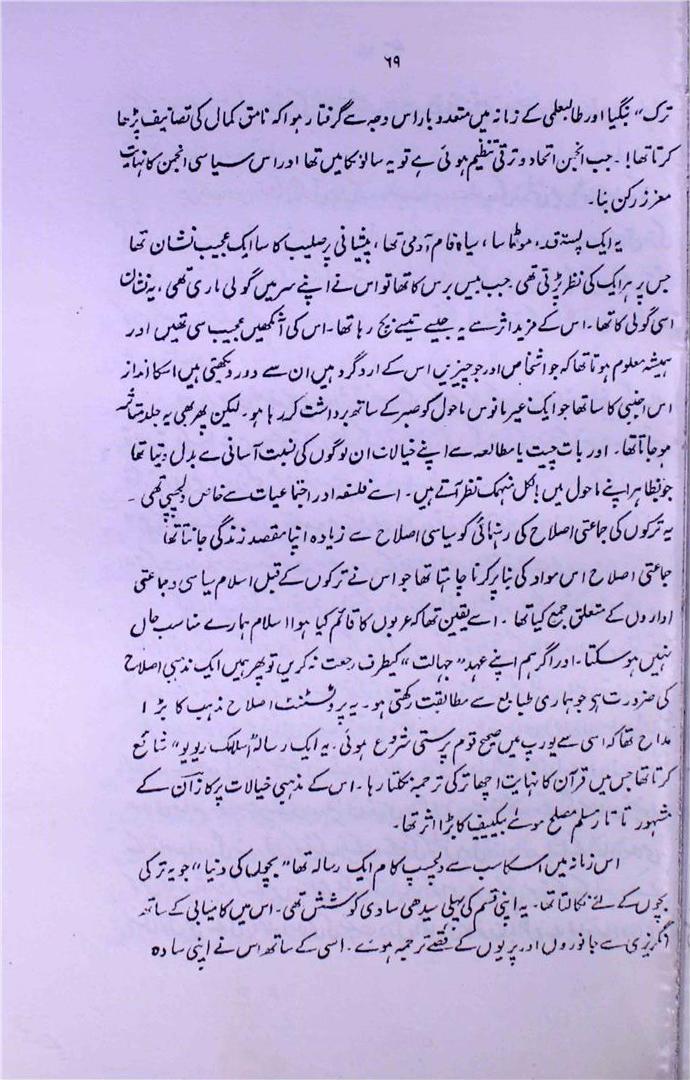 ۶۹
ترک" بنگیا اور طالبعلمی کے زمانہ میں متعدد بار اس وجہ سے گرفتار ہوا کہ نامق کمال کی تصانیف پڑھا
کرتا تھا! ۔ جب انجمن اتحاد و ترقی تنظیم ہوئی ہے تو یہ سالونکا میں تھا اور اس سیاسی انجمن کا نہایت
معزز رکن بنا۔
یہ ایک پستہ قد، موٹا سا، سیاہ فام آدمی تھا، پیشانی پر صلیب کا سا ایک عجیب نشان تھا
جس پر ہر ایک کی نظر پڑتی تھی جب بیس برس کا تھا تو اس نے اپنے سر میں گولی ماری تھی، یہ نشان
اسی گولی کا تھا۔ اس کے مزید اثر سے یہ جیسے تیسے بچ رہا تھا۔ اس کی آنکھیں عجیب سی تھیں اور
ہمیشہ معلوم ہوتا تھا کہ جو اشخاص اور جو چیزیں اس کے ارد گرد ہیں ان سے دور دیکھتی ہیں اسکا انداز
اس اجنبی کا سا تھا جو ایک غیر مانوس ماحول کو صبر کے ساتھ برداشت کر رہا ہو۔ لیکن پھر بھی یہ جلد متاثر
ہو جاتا تھا۔ اور بات چیت یا مطالعہ سے اپنے خیالات ان لوگوں کی نسبت آسانی سے بدل دیتا تھا
جو بظاہر اپنے ماحول میں بالکل منہمک نظر آتے ہیں۔ اسے فلسفہ اور اجتماعیات سے خاص دلچسپی تھی۔
یہ ترکوں کی جماعتی اصلاح کی رہنمائی کو سیاسی اصلاح سے زیادہ اپنا مقصد زندگی جانتا تھا
جماعتی اصلاح اس مواد کی بنا پر کرنا چاہتا تھا جو اس نے ترکوں کے قبل اسلام سیاسی و جماعتی
اداروں کے متعلق جمع کیا تھا۔ اسے یقین تھا کہ عربوں کا قائم کیا ہوا اسلام ہمارے مناسب حال
نہیں ہو سکتا۔ اور اگر ہم اپنے عہد "جہالت" کیطرف رجعت نہ کریں تو پھر ہمیں ایک مذہبی اصلاح
کی ضرورت ہے جو ہماری طبایع سے مطابقت رکھتی ہو۔ یہ پروٹسٹنٹ اصلاح مذہب کا بڑا
مداح تھا کہ اسی سے یورپ میں صحیح قوم پرستی شروع ہوئی۔ یہ ایک رسالہ "اسلامک ریویو" شائع
کرتا تھا جس میں قرآن کا نہایت اچھا ترکی ترجمہ نکلتا رہا۔ اس کے مذہبی خیالات پر کازان کے
مشہور تاتار مسلم مصلح موسےٰ بیگییف کا بڑا اثر تھا۔
اس زمانہ میں اسکا سب سے دلچسپ کام ایک رسالہ تھا "بچوں کی دنیا" جو یہ ترکی
بچوں کے لئے نکالتا تھا۔ یہ اپنی قسم کی پہلی سیدھی سادی کوشش تھی۔ اس میں کامیابی کے ساتھ
انگریزی سے جانوروں اور پریوں کے قصے ترجمہ ہوے۔ اسی کے ساتھ اس نے اپنی سادہ